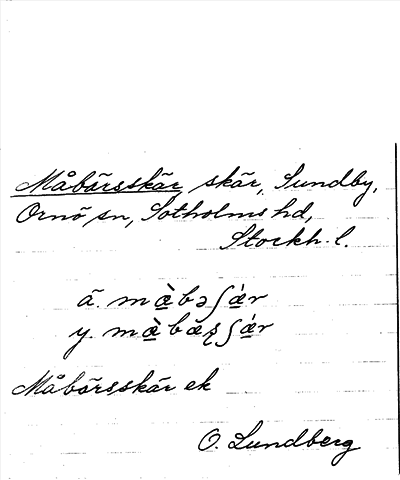 Måbärsskär, skär, Sundby,
Ornö sn, Sotholms hd,
Stockh. l.
ä. mæ̀bəʃǽr
y. mæ̀bæ̆ʂʃǽr
Måbärsskär ek
O. Lundberg